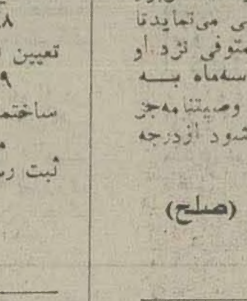 ی می‌نمایدتا
متوفی نزد او
سه‌ماه به
وصیتنامه‌جز
شود ازدرجه
(صلح)
۸
تعیین
۹
ساختم
ثبت رس